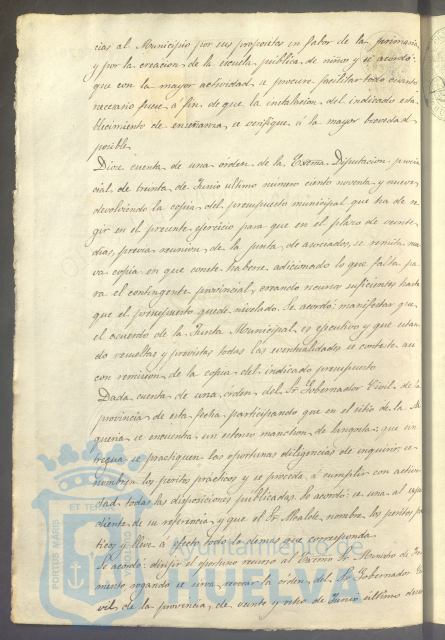 cias al Municipio por sus propositos en fabor de la primaria
y por la creacion de la escuela publica de niños y se acordó:
que con la mayor actividad se procure facilitar todo cuanto
necesario fuese á fin de que la instalasion del indicado esta
blecimiento de enseñanza, se verifique á la mayor brevedad
posible.
Diose cuenta de una orden de la Exma. Diputacion provin
cial de treinta de Junio ultimo numero ciento noventa y nueve
devolviendo la copia del presupuesto municipal que ha de re
gir en el presente ejercicio para que en el plazo de veinte
dias, previa reunion de la junta de asociados, se remita nue
va copia en que conste haberse adicionado lo que falta pa
ra el contingente provincial, creando recursos suficientes hasta
que el presupuesto quede nivelado. Se acordó: manifestar que
el acuerdo de la Junta Municipal es ejecutivo y que estan
do resueltas y previstas todas las eventualidades se conteste asi
con remision de la copia del indicado presupuesto.
Dada cuenta de una orden del Sr. Gobernador Civil de la
provincia de esta fecha participando que en el sitio de la
se encuentra un estenso manchon de langosta: que sin
tregua se practiquen las oportunas diligencias de inquirir, se
nombren los peritos practicos y se proceda á cumplir con activi
dad todas las disposiciones publicadas. Se acordó: se una al espe
diente de su referencia y que el Sr. Alcalde nombre los peritos prac
ticos y lleve á efecto todo lo demas que corresponda.
Se acordó: dirigir el oportuno recurso al Exmo. Sr. Ministro de Fo
mento rogando se sirva revocar la orden del Sr. Gobernador Ci
vil de la provincia, de veinte y ocho de Junio ultimo
PORTUS MARIS
ET TERRAE
Ayuntamiento de
HUELVA